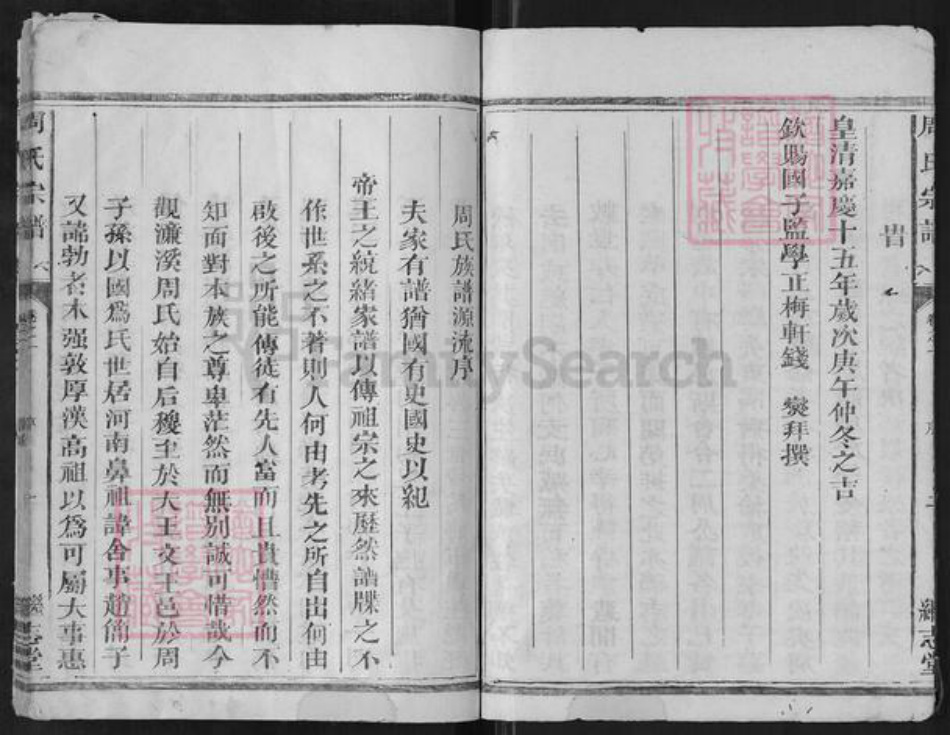 周氏宗譜
繼志堂
皇清嘉慶十五年歲次庚午仲冬之吉
欽賜國子監學正梅軒錢 燮拜撰
周氏族譜源流序
夫家有譜猶國有史國史以紀
帝王之統緒家譜以傳祖宗之來歷然譜牒之不
作世系之不著則人何由考先之所自出何由
啟後之所能傳徒有先人富而且貴懵然而不
知面對本族之尊卑茫然而無別誠可惜哉今
觀濂溪周氏始自后稷至於大王文王邑於周
子孫以國為氏世居河南鼻祖諱舍事趙簡子
又諱勃者木强敦厚漢高祖以為可屬大事惠
周氏宗譜
繼志堂
FamilySearch